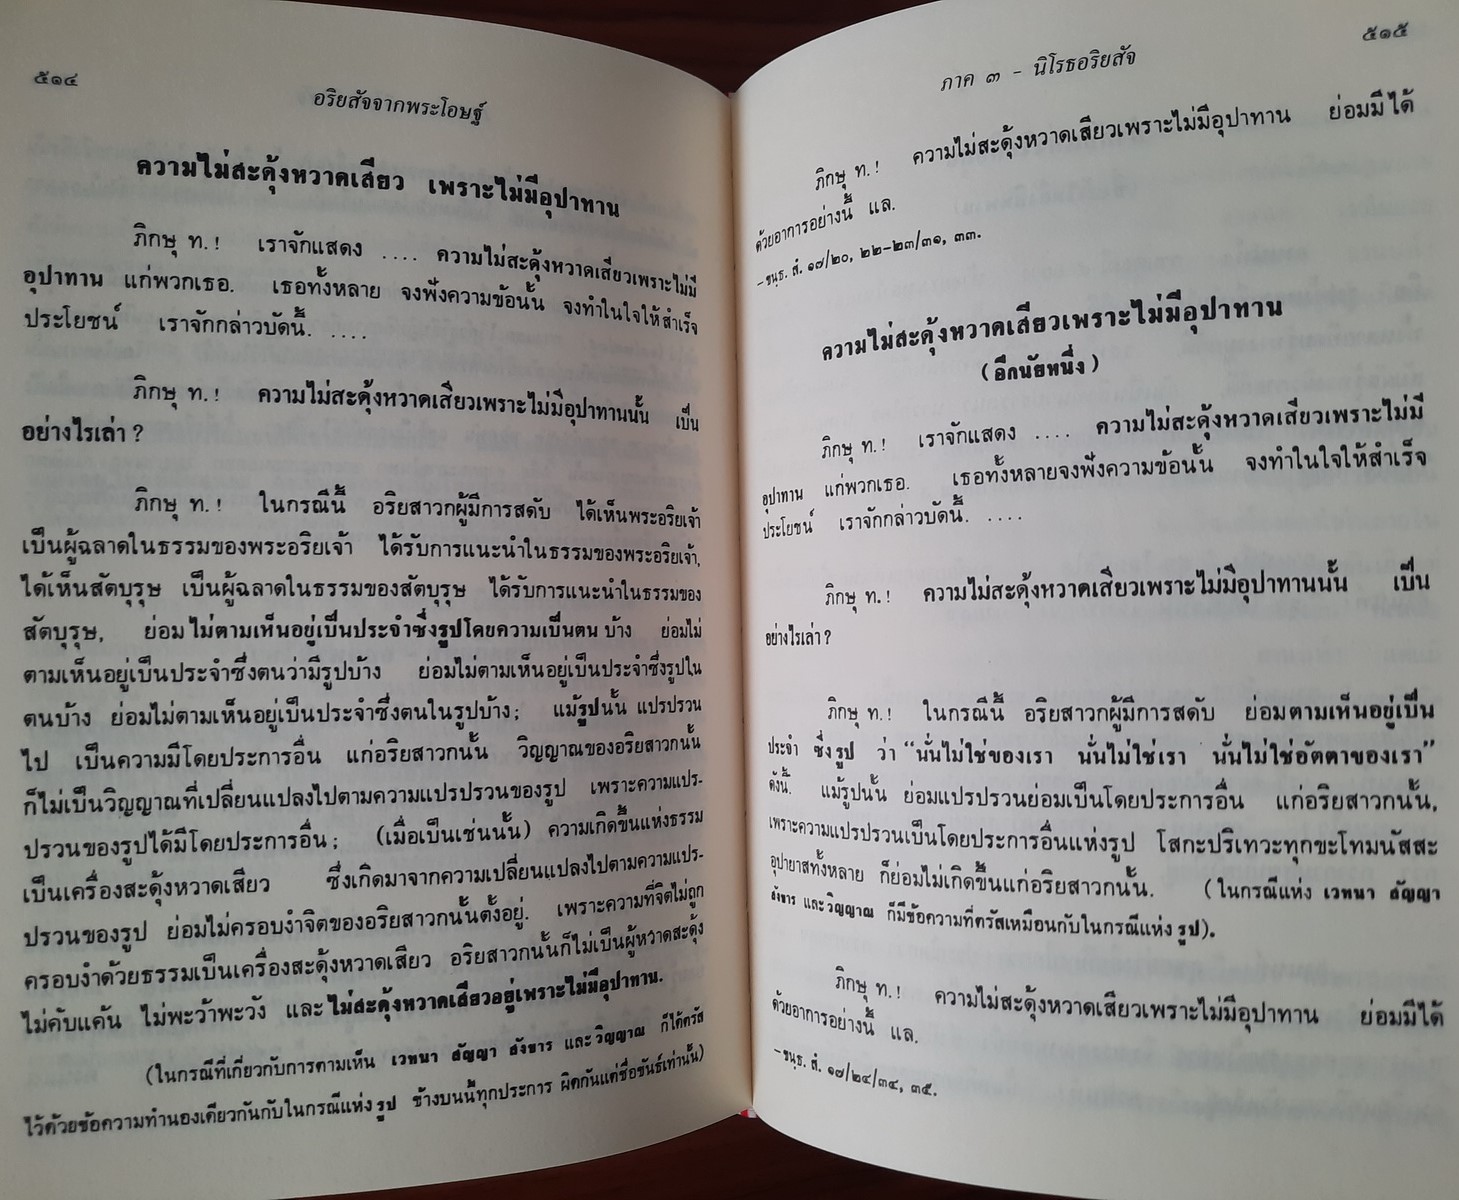 ๕๑๔
อริยสัจจากพระโอษฐ์
ความไม่สะดุ้งหวาดเสียว เพราะไม่มีอุปาทาน
ภิกษุ ท.! เราจักแสดง .... ความไม่สะดุ้งหวาดเสียวเพราะไม่มี
อุปาทาน แก่พวกเธอ. เธอทั้งหลาย จงฟังความข้อนั้น จงทำในใจให้สำเร็จ
ประโยชน์ เราจักกล่าวบัดนี้. ....
ภิกษุ ท.! ความไม่สะดุ้งหวาดเสียวเพราะไม่มีอุปาทานนั้น เป็น
อย่างไรเล่า ?
ภิกษุ ท.! ในกรณีนี้ อริยสาวกผู้มีการสดับ ได้เห็นพระอริยเจ้า
เป็นผู้ฉลาดในธรรมของพระอริยเจ้า ได้รับการแนะนำในธรรมของพระอริยเจ้า,
ได้เห็นสัตบุรุษ เป็นผู้ฉลาดในธรรมของสัตบุรุษ ได้รับการแนะนำในธรรมของ
สัตบุรุษ, ย่อมไม่ตามเห็นอยู่เป็นประจำซึ่งรูปโดยความเป็นตนบ้าง ย่อมไม่
ตามเห็นอยู่เป็นประจำซึ่งตนว่ามีรูปบ้าง ย่อมไม่ตามเห็นอยู่เป็นประจำซึ่งรูปใน
ตนบ้าง ย่อมไม่ตามเห็นอยู่เป็นประจำซึ่งตนในรูปบ้าง; แม้รูปนั้น แปรปรวน
ไป เป็นความมีโดยประการอื่น แก่อริยสาวกนั้น วิญญาณของอริยสาวกนั้น
ก็ไม่เป็นวิญญาณที่เปลี่ยนแปลงไปตามความแปรปรวนของรูป เพราะความแปร-
ปรวนของรูปได้มีโดยประการอื่น; (เมื่อเป็นเช่นนั้น) ความเกิดขึ้นแห่งธรรม
เป็นเครื่องสะดุ้งหวาดเสียว ซึ่งเกิดมาจากความเปลี่ยนแปลงไปตามความแปร-
ปรวนของรูป ย่อมไม่ครอบงำจิตของอริยสาวกนั้นตั้งอยู่. เพราะความที่จิตไม่ถูก
ครอบงำด้วยธรรมเป็นเครื่องสะดุ้งหวาดเสียว อริยสาวกนั้นก็ไม่เป็นผู้หวาดสะดุ้ง
ไม่คับแค้น ไม่พะว้าพะวัง และไม่สะดุ้งหวาดเสียวอยู่เพราะไม่มีอุปาทาน.
(ในกรณีที่เกี่ยวกับการตามเห็น เวทนา สัญญา สังขาร และวิญญาณ ก็ได้ตรัส
ไว้ด้วยข้อความทำนองเดียวกันกับในกรณีแห่งรูป ข้างบนนี้ทุกประการ ผิดกันแต่ชื่อขันธ์เท่านั้น)
๕๑๕
ภาค ๓ - นิโรธอริยสัจ
ภิกษุ ท.! ความไม่สะดุ้งหวาดเสียวเพราะไม่มีอุปาทาน ย่อมมีได้
ด้วยอาการอย่างนี้ แล.
- ขนฺธ. สํ. ๑๗/๒๐, ๒๒-๒๓/๓๑, ๓๓.
ความไม่สะดุ้งหวาดเสียวเพราะไม่มีอุปาทาน
(อีกนัยหนึ่ง)
ภิกษุ ท.! เราจักแสดง .... ความไม่สะดุ้งหวาดเสียวเพราะไม่มี
อุปาทาน แก่พวกเธอ. เธอทั้งหลายจงฟังความข้อนั้น จงทำในใจให้สำเร็จ
ประโยชน์ เราจักกล่าวบัดนี้. ....
ภิกษุ ท.! ความไม่สะดุ้งหวาดเสียวเพราะไม่มีอุปาทานนั้น เป็น
อย่างไรเล่า ?
ภิกษุ ท.! ในกรณีนี้ อริยสาวกผู้มีการสดับ ย่อมตามเห็นอยู่เป็น
ประจำ ซึ่งรูป ว่า “นั่นไม่ใช่ของเรา นั่นไม่ใช่เรา นั่นไม่ใช่อัตตาของเรา”
ดังนี้. แม้รูปนั้น ย่อมแปรปรวนย่อมเป็นโดยประการอื่น แก่อริยสาวกนั้น,
เพราะความแปรปรวนเป็นโดยประการอื่นแห่งรูป โสกะปริเทวะทุกขะโทมนัสสะ
อุปายาสทั้งหลาย ก็ย่อมไม่เกิดขึ้นแก่อริยสาวกนั้น. (ในกรณีแห่ง เวทนา สัญญา
สังขาร และวิญญาณ ก็มีข้อความที่ตรัสเหมือนกับในกรณีแห่ง รูป).
ภิกษุ ท.! ความไม่สะดุ้งหวาดเสียวเพราะไม่มีอุปาทาน ย่อมมีได้
ด้วยอาการอย่างนี้ แล.
- ขนฺธ. สํ. ๑๗/๒๔/๓๔, ๓๕.